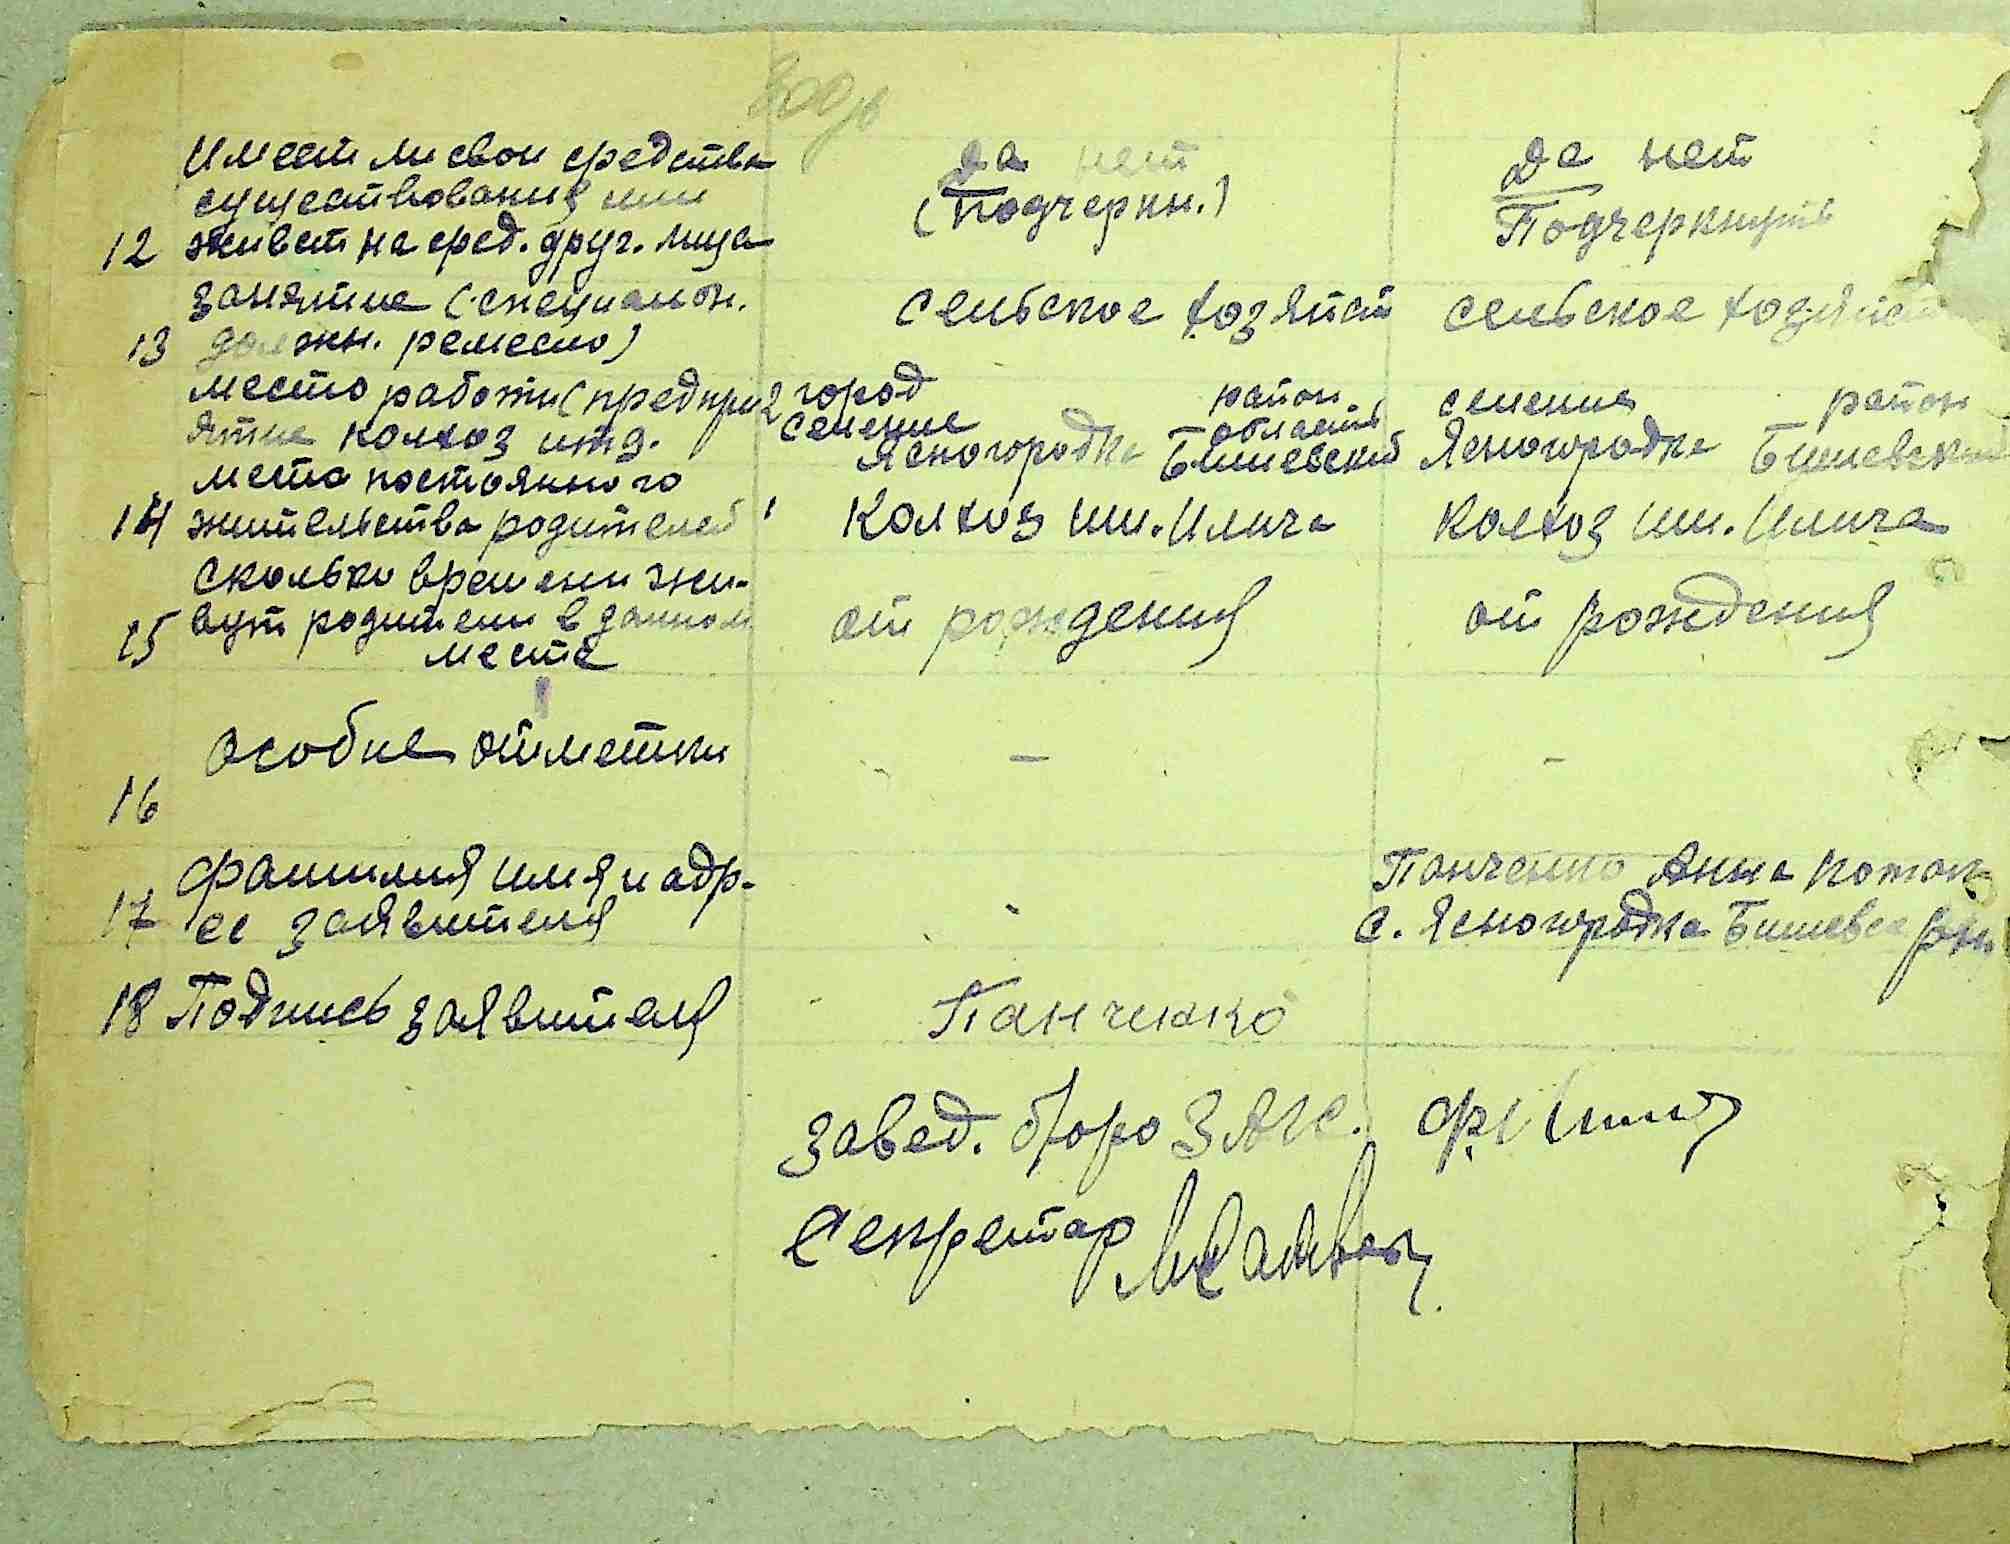 Имеет ли свои средства
существования или
12 живет на сред. друг. лица
да нет
(Подчеркн.)
Да нет
Подчеркнуть
занятие (специальн.
13 должн. ремесло)
сельское хозяйст
сельское хозяйст
место работы (предпри
ятие колхоз итд.
места постоянного
14 жительства родителей
2 город район
селение область
Ясногородка Бишевский
1 Колхоз им. Илича
селение район
Ясногородка Бишевский
Колхоз им. Илича
Сколько времени жи-
15 вут родители в данном
месте
от рождения
от рождения
16 особые отметки
—
-
Фамилия имя и адр-
17 ес заявителя
Панченко Анна
с. Ясногородка Бишевск
18 Подпись заявителя
Панченко
Завед. бюро ЗАГС.
Секретар